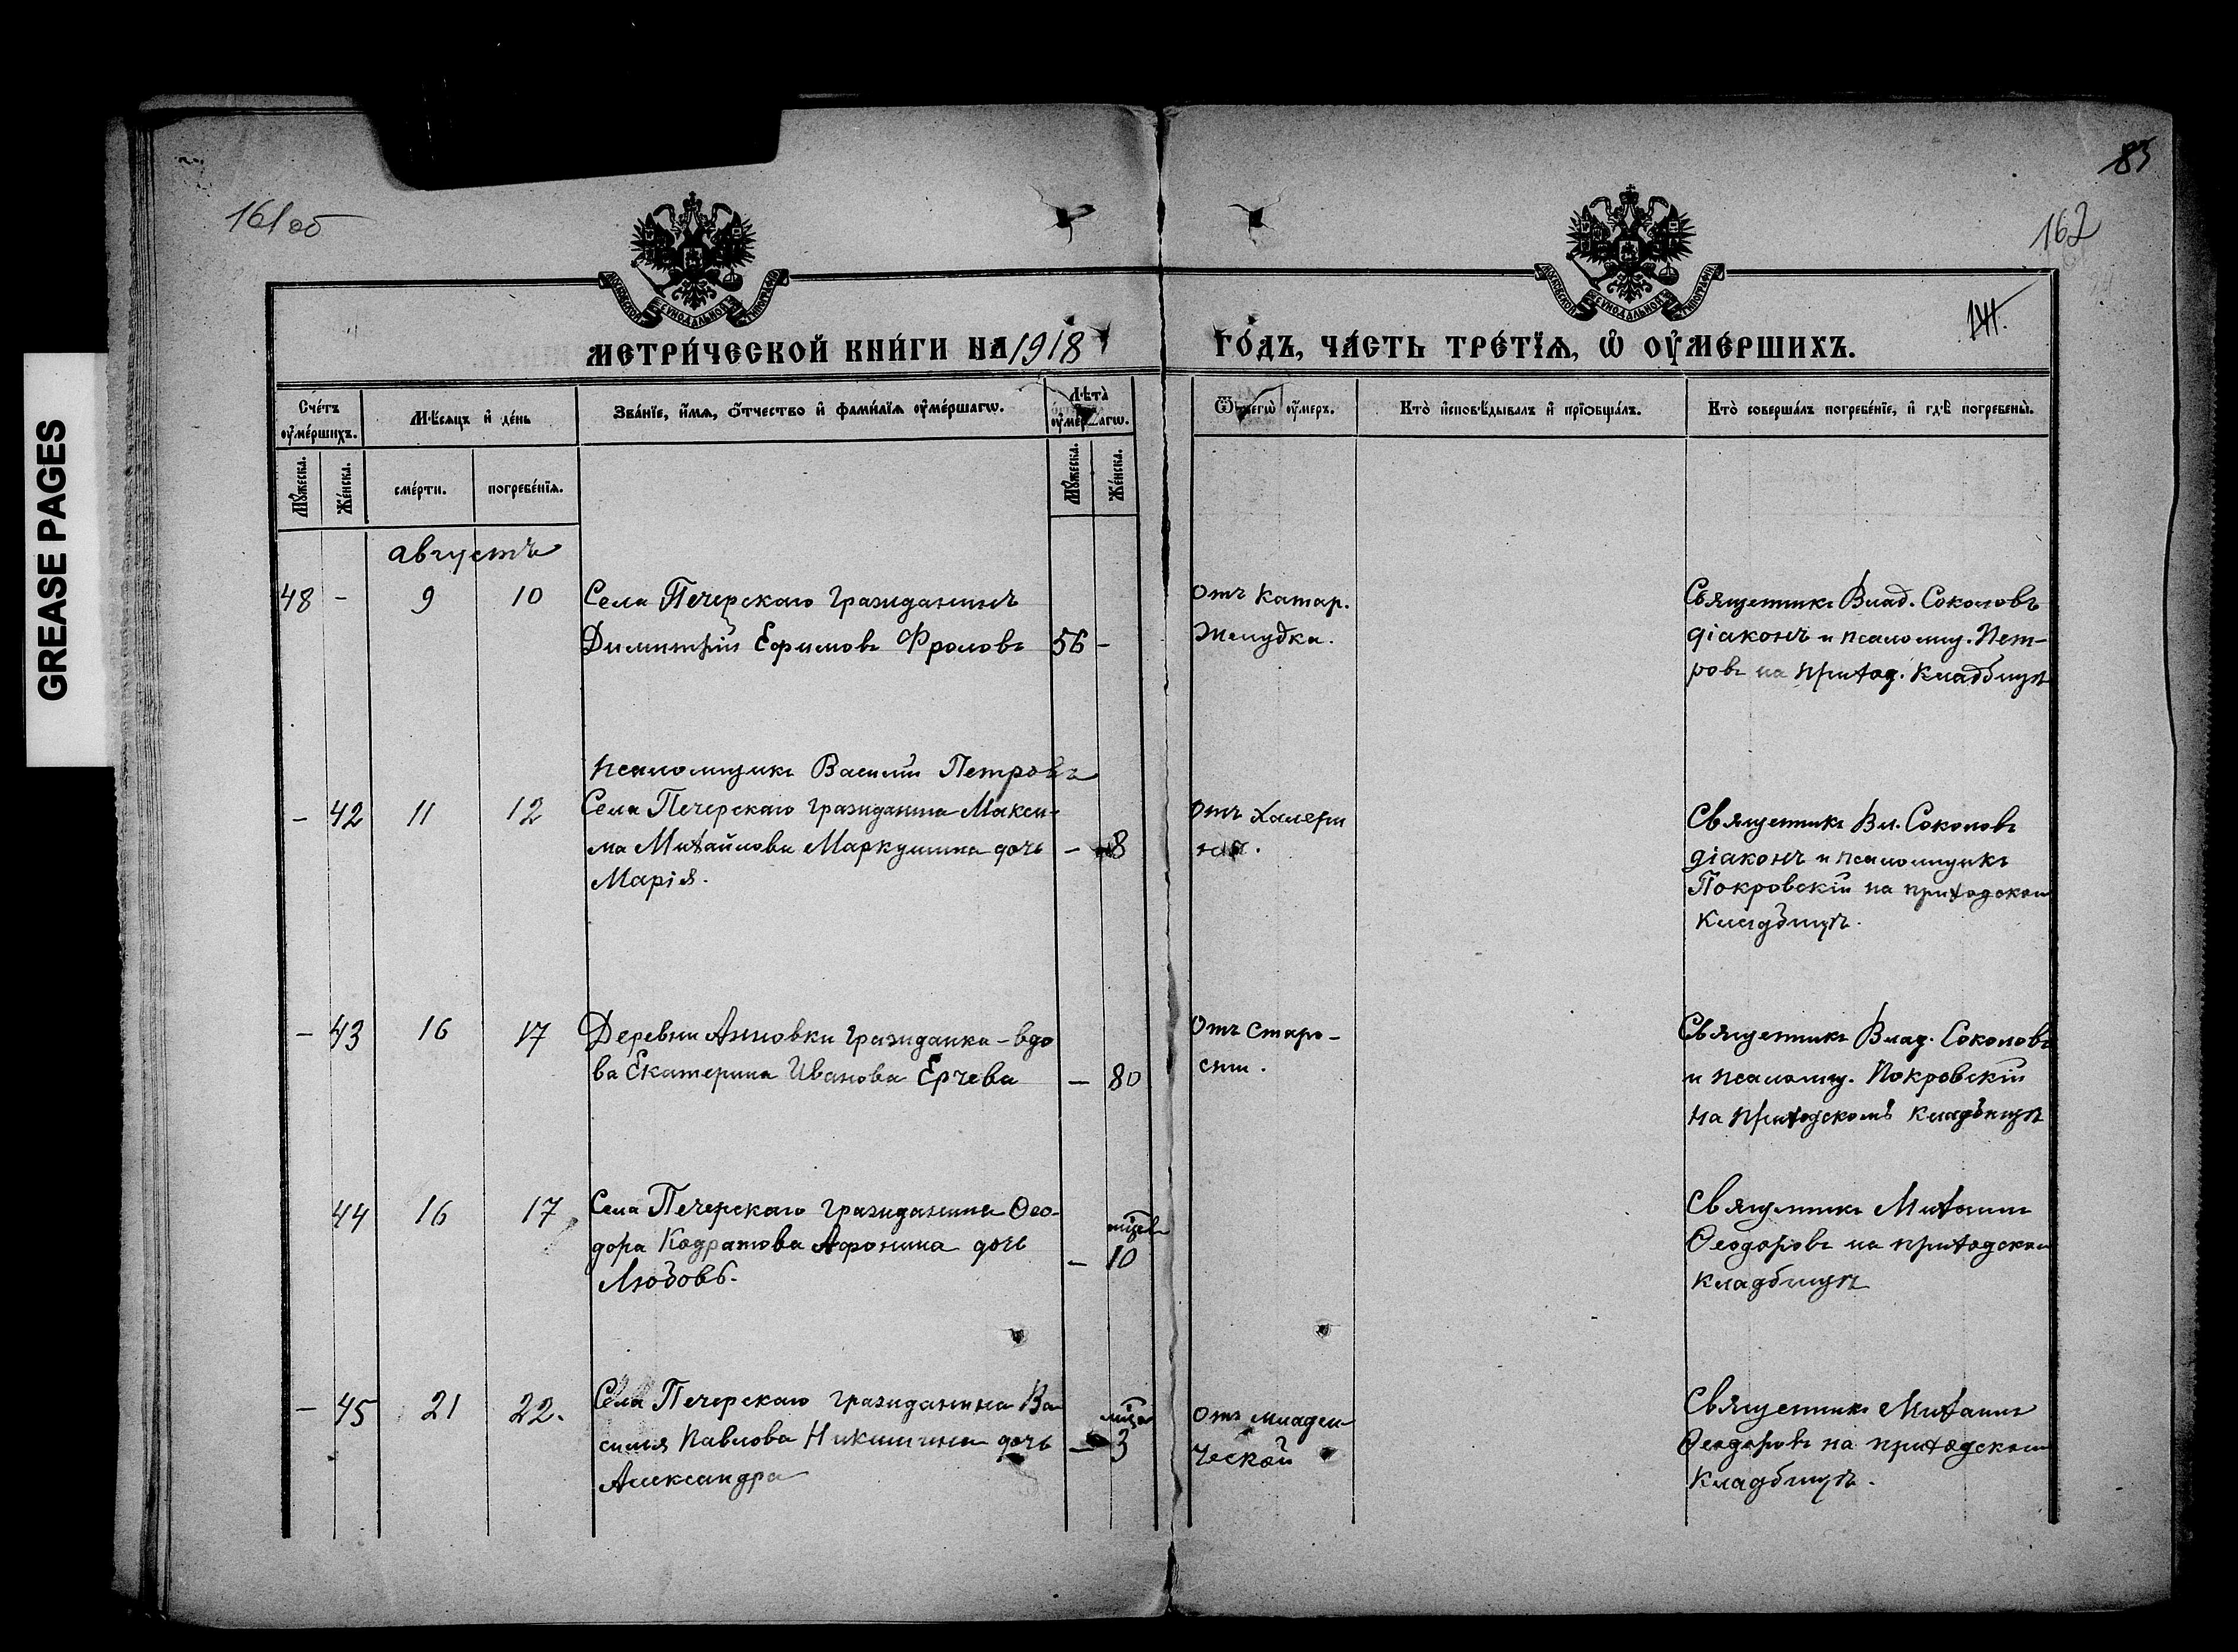 GREASE PAGES
161 об
83
162
141.
МЕТРИ́ЧЕСКОЙ КНИ́ГИ НА 1918 ГО́ДЪ, ЧА́СТЬ ТРЕ́ТЇѦ, Ѡ҆ ОУ҆МЕ́РШИХЪ.
Сче́тъ оу҆ме́ршихъ.
Мѣ́сяцъ и҆ де́нь
Зва́нїе, и҆́мѧ, ѻ҆́тчество и҆ фами́лїѧ оу҆ме́ршагѡ.
Лѣ́та оу҆ме́ршагѡ.
Ѿ чегѡ̀ оу҆́меръ.
Кто̀ и҆сповѣ́дывалъ и҆ прїѡбща́лъ.
Кто̀ соверша́лъ погребе́нїе, и҆ гдѣ̀ погребены̀.
Мꙋ́жеска.
Же́нска.
сме́рти.
погребе́нїѧ.
Мꙋ́жеска.
Же́нска.
августъ
48 - 9 10 Села Печерскаго гражданинъ
Димитрій Ефимовъ Фроловъ 56 -
Отъ катар.
желудка.
Священникъ Влад. Соколовъ
діаконъ и псаломщ. Пет-
ровъ на приход. кладбищѣ
псаломщикъ Василій Петровъ
- 42 11 12 Села Печерскаго гражданина Макси-
ма Михайлова Маркушина дочь - 8
Марія.
Отъ холери
Священникъ Вл. Соколовъ
діаконъ и псаломщикъ
Покровскій на приходском
кладбищѣ.
- 43 16 17 Деревни Анновки гражданка - вдо
ва Екатерина Иванова Ерчева - 80
Отъ старо-
сти.
Священникъ Влад. Соколовъ
и псаломщ. Покровскій
на приходскомъ кладбищѣ
44 16 17 Села Печерскаго гражданина Ѳео-
дора Кодратова Афонина дочь - 10
Любовь.
Священникъ Михаилъ
Ѳеодоровъ на приходском
кладбищѣ
- 45 21 22. Села Печерскаго гражданина Ва
силія Павлова Никишина дочь - 3
Александра
Отъ младен
ческой
Священникъ Михаилъ
Ѳеодоровъ на приходском
кладбищѣ.